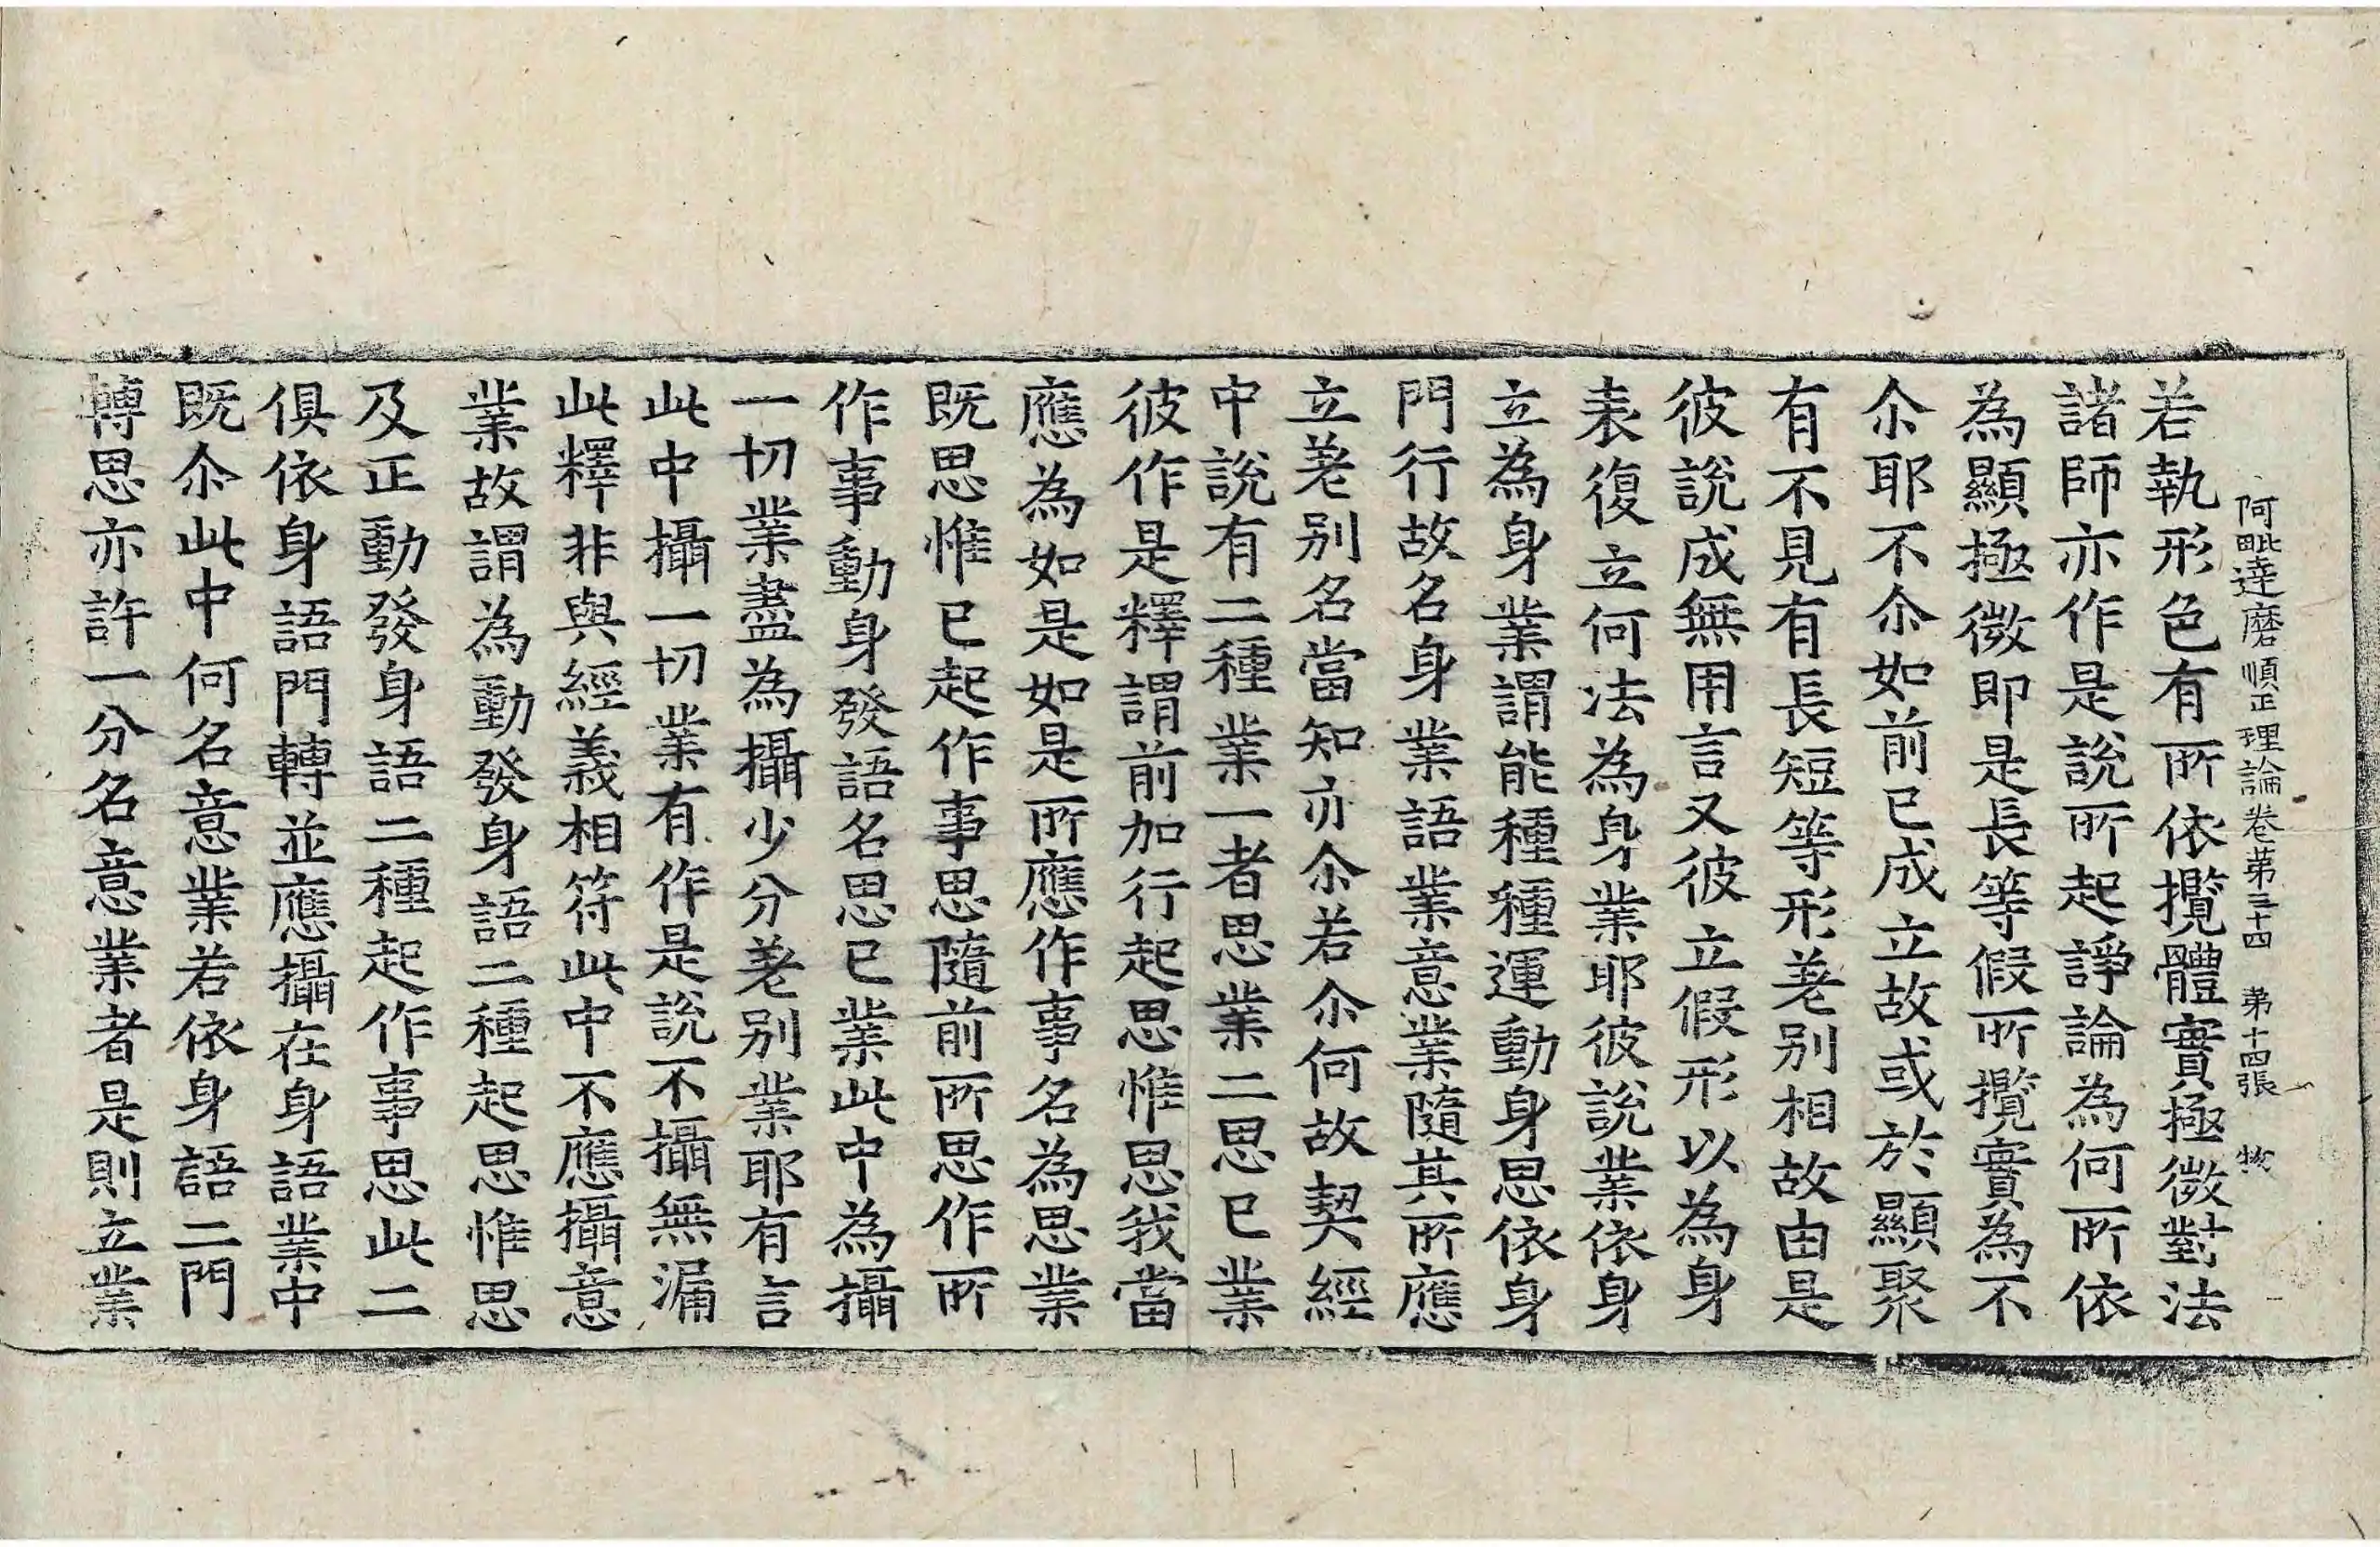 阿毗達磨順正理論卷第三十四　第十四張　物
若執形色有所依攬體實極微對法
諸師亦作是說所起諍論為何所依
為顯極微即是長等假所攬實為不
尒耶不尒如前已成立故或於顯聚
有不見有長短等形差別相故由是
彼說成無用言又彼立假形以為身
表復立何法為身業耶彼說業依身
立為身業謂能種種運動身思依身
門行故名身業語業意業隨其所應
立差別名當知亦尒若尒何故契經
中說有二種業一者思業二思已業
彼作是釋謂前加行起思惟思我當
應為如是如是所應作事名為思業
既思惟已起作事思隨前所思作所
作事動身發語名思已業此中為攝
一切業盡為攝少分差別業耶有言
此中攝一切業有作是說不攝無漏
此釋非與經義相符此中不應攝意
業故謂為動發身語二種起思惟思
及正動發身語二種起作事思此二
俱依身語門轉並應攝在身語業中
既尒此中何名意業若依身語二門
轉思亦許一分名意業者是則立業